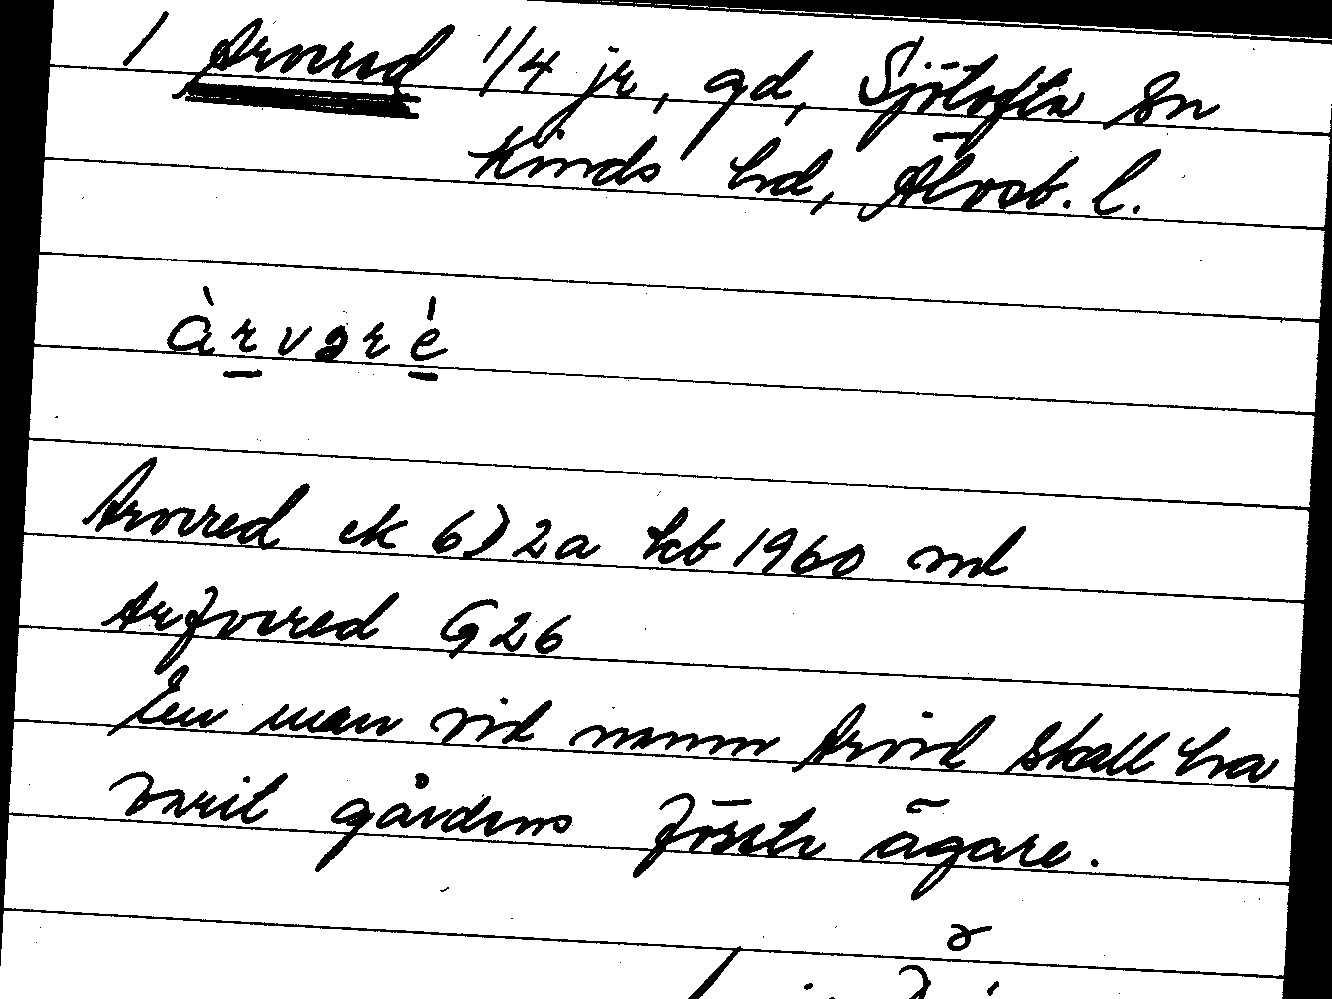 1 Arvered 1/4 jr, gd, Sjötofta Sn
Kinds hd, Älvsb. l.
àrvəré
Arvered ek 6) 2a kb 1960 md
Arfvered G26
En man vid namn Arvid skall ha
varit gårdens första ägare.